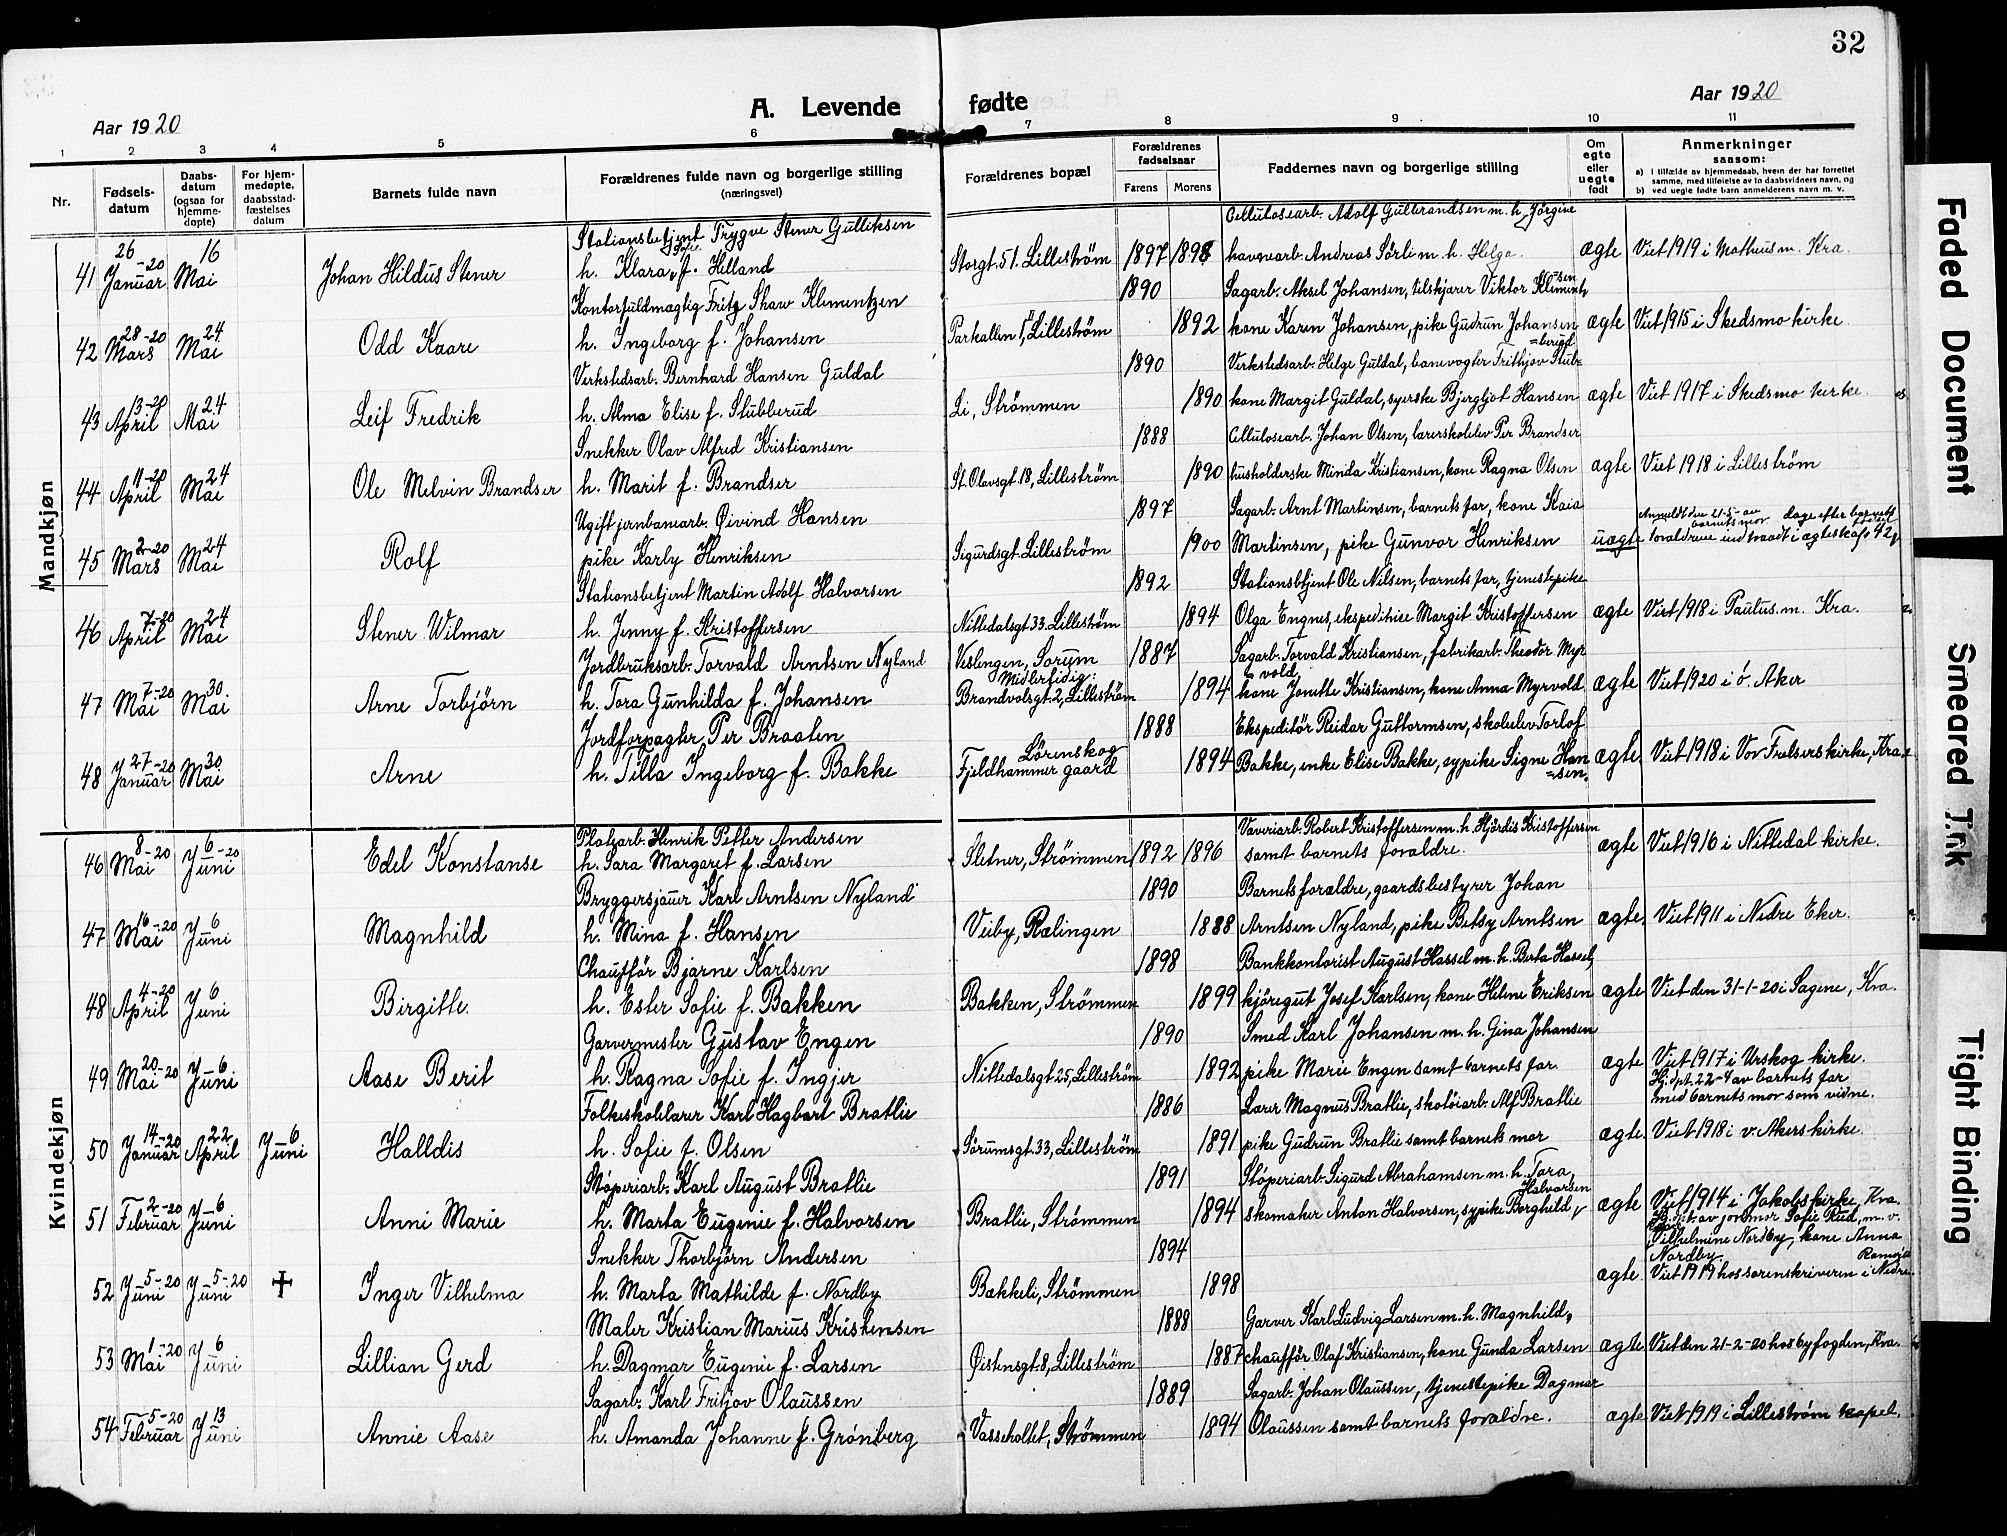 32
Aar 1920
A. Levende fødte
Aar 1920
1 2 3 4 5 6 7 8 9 10 11
Nr.
Fødsels-datum
Daabs-datum (ogsaa for hjemme-døpte)
For hjem-medøpte, daabsstad-fæstelses datum
Barnets fulde navn
Forældrenes fulde navn og borgerlige stilling (næringsvei)
Forældrenes bopæl
Forældrenes fødselsaar
Farens Morens
Faddernes navn og borgerlige stilling
Om egte eller uegte født
Anmerkninger saasom:
a) i tilfælde av hjemmedaab, hvem der har forrettet samme, med tilføielse av to daabsvidners navn, og
b) ved uegte fødte barn anmelderens navn m. v.
Mandkjøn
Stationsbetjent Trygve Stener Gulliksen Cellulosearb. Adolf Gulbrandsen m. h. Jörgine
41 26-20 Januar 16 Mai Johan Hildus Stener h. Klara Sofie f. Helland Storgt. 51. Lilleström 1897 1898 havnearb. Andreas Sörli m. h. Helga. ægte Viet 1919 i Mathæus m. Kra.
Kontorfuldmægtig Fritz Shaw Klementzen 1890 Sagarb. Aksel Johansen, tilskjærer Viktor Klements=sen
42 28-20 Mars 24 Mai Odd Kaare h. Ingeborg f. Johansen Parkalleen 1, Lilleström 1892 kone Karen Johansen, pike Gudrun Johansen ægte Viet 1915 i Skedsmo kirke.
Verkstedsarb. Bernhard Hansen Guldal 1890 Verkstedsarb. Helge Guldal, banevogter Frithjov Stub=berud
43 13-20 April 24 Mai Leif Fredrik h. Alma Elise f. Stubberud Li, Strömmen 1890 kone Margit Guldal, syerske Bjergljot Hansen ægte Viet 1917 i Skedsmo kirke.
Snekker Olav Alfred Kristiansen 1888 Cellulosearb. Johan Olsen, lærerskoleelev Per Brandser
44 11-20 April 24 Mai Ole Melvin Brandser h. Marit f. Brandser St. Olavsgt. 18, Lilleström 1890 husholderske Minda Kristiansen, kone Ragna Olsen ægte Viet 1918 i Lilleström
Ugift jernbanearb. Øivind Hansen 1897 Sagarb. Arnt Martinsen, barnets far, kone Kaia Anmeldt den 21-5- av barnets mor
45 2-20 Mars 24 Mai Rolf pike Karby Henriksen Sigurdsgt. Lilleström 1900 Martinsen, pike Gunvor Henriksen uægte forældrene indtraadt i ægteskap 42 dage efter barnets fødsel
Stationsbetjent Martin Adolf Halvorsen 1892 Stationsbtjent Ole Nilsen, barnets far, tjenestepike
46 7-20 April 24 Mai Stener Wilmar h. Jenny f. Kristoffersen Nittedalsgt. 33. Lilleström 1894 Olga Engnes, ekspeditrice Margit Kristoffersen ægte Viet 1918 i Paulus. m. Kra.
Jordbruksarb. Torvald Arntsen Nyland Veslengen, Sorum Midlertidig: 1887 Sagarb. Torvald Kristiansen, fabrikarb. Theodor Myr vold,
47 7-20 Mai 30 Mai Arne Torbjörn h. Tora Gunhilda f. Johansen Brandvolsgt. 2, Lilleström 1894 kone Jonette Kristiansen, kone Anna Myrvold ægte Viet 1920 i ö. Aker
Jordforpagter Per Braaten 1888 Ekspeditör Reidar Guttormsen, skoleelev Torlof
48 27-20 Januar 30 Mai Arne h. Tilla Ingeborg f. Bakke Lörenskog Fjeldhammer gaard 1894 Bakke, enke Elise Bakke, sypike Signe Han=sen. ægte Viet 1918 i Vor Frelsers kirke, Kra.
Kvindekjøn
Platearb. Henrik Petter Andersen Væveriarb. Robert Kristoffersen m. h. Hjördis Kristoffersen
46 8-20 Mai 6-20 Juni Edel Konstanse h. Sara Margaret f. Larsen Sletner, Strömmen 1892 1896 samt barnets forældre. ægte Viet 1916 i Nittedal kirke.
Bryggersjauer Karl Arntsen Nyland 1890 Barnets forældre, gaardsbestyrer Johan
47 16-20 Mai 6 Juni Magnhild h. Mina f. Hansen Veiby, Rælingen 1888 Arntsen Nyland, pike Betsy Arntsen ægte. Viet 1911 i Nedre Eker.
Chaufför Bjarne Karlsen 1898 Bankkontorist August Hassel m. h. Berta Hassel,
48 4-20 April 6 Juni Birgitte. h. Ester Sofie f. Bakken Bakken, Strömmen 1899 kjöregut Josef Karlsen, kone Helene Eriksen ægte Viet den 31-1-20 i Sagene, Kra.
Garvermester Gustav Engen 1890 Smed Karl Johansen m. h. Gina Johansen
49 20-20 Mai 6 Juni Aase Berit h. Ragna Sofie f. Ingjer Nittedalsgt. 25, Lilleström 1892 pike Marie Engen samt barnets far. ægte Viet 1917 i Urskog kirke.
Folkeskolelærer Karl Hagbart Bratlie 1886 Lærer Magnus Bratlie, skotöiarb. Alf Bratlie Hj. dpt. 22-4 av barnets far med barnets mor som vidne.
50 14-20 Januar 22 April 6 Juni Halldis h. Sofie f. Olsen Sörumsgt. 33, Lilleström 1891 pike Gudrun Bratlie samt barnets mor ægte. Viet 1918 i v. Akers kirke.
Støperiarb. Karl August Bratlie 1891 Støperiarb. Sigurd Abrahamsen m. h. Tora,
51 2-20 Februar 6 Juni Anni Marie h. Marta Eugenie f. Halvorsen Bratlie, Strømmen 1894 skomaker Anton Halvorsen, sypike Borghild Halvorsen ægte Viet 1914 i Jakobs kirke, Kra.
Snekker Thorbjörn Andersen 1894 Hj. dpt. av jordmor Sofie Rud, m. v. Vilhelmine Nordby, kone Anna Nordby
52 5-20 Juni 5-20 Juni + Inger Vilhelma h. Marta Mathilde f. Nordby Bækkeli, Strømmen 1898 ægte Viet 1919 hos sorenskriveren i Nedre Romerike
Maler Kristian Marius Kristensen 1888 Garver Karl Ludvig Larsen m. h. Magnhild,
53 1-20 Mai 6 Juni Lillian Gerd h. Dagmar Eugenie f. Larsen Øistensgt. 8, Lilleström 1887 chauffør Olaf Kristiansen, kone Gunda Larsen ægte Viet den 21-2-20 hos byfogden, Kra.
Sagarb. Karl Fritjov Olaussen 1889 Sagarb. Johan Olaussen, tjenestepike Dagmar
54 5-20 Februar 13 Juni Annie Aase h. Amanda Johanne f. Grønberg Vasseholtet, Strømmen 1894 Olaussen samt barnets forældre. ægte Viet 1919 i Lillestrøm kapel.
Faded Document
Smeared Ink
Tight Binding